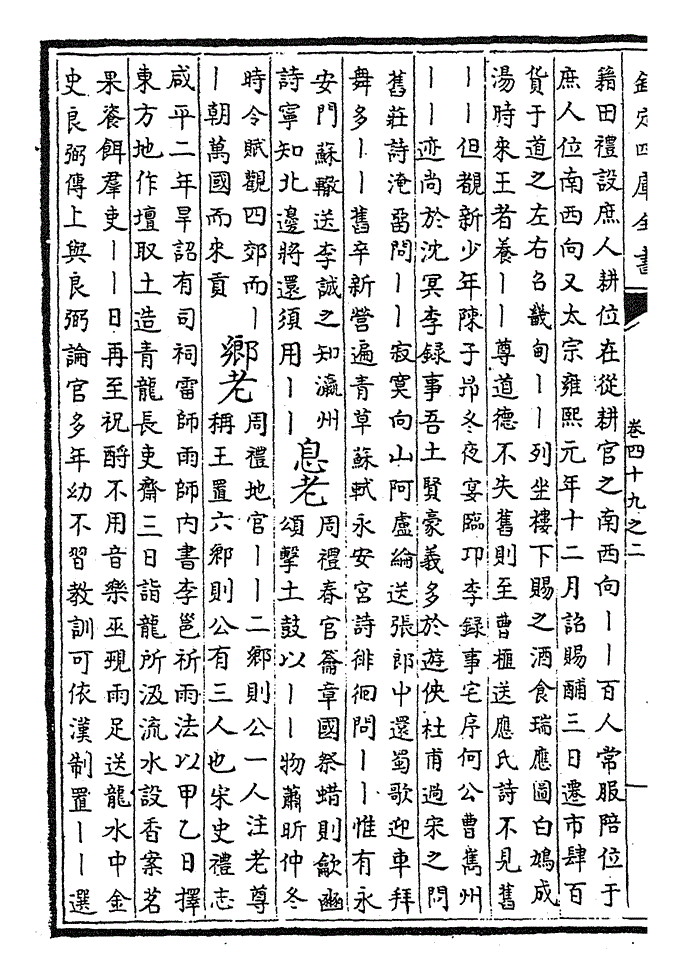 欽定四庫全書
卷四十九之二
籍田禮設庶人耕位在從耕官之南西向丨丨百人常服陪位于
庶人位南西向又太宗雍熙元年十二月詔賜酺三日遷市肆百
貨于道之左右召畿甸丨丨列坐樓下賜之酒食瑞應圖白鳩成
湯時來王者養丨丨尊道德不失舊則至曹攄送應氏詩不見舊
丨丨但覩新少年陳子昂冬夜宴臨卭李録事宅序何公曹雋州
丨丨迹尚於沈冥李録事吾土賢豪義多於遊俠杜甫過宋之問
舊莊詩淹留問丨丨寂寞向山阿盧綸送張郎中還蜀歌迎車拜
舞多丨丨舊卒新營遍青草蘇軾永安宮詩徘徊問丨丨惟有永
安門蘇轍送李誠之知瀛州
詩寧知北邊將還須用丨丨
息老
周禮春官籥章國祭蜡則龡豳
頌擊土鼓以丨丨物蕭昕仲冬
時令賦觀四郊而丨
丨朝萬國而來貢
鄉老
周禮地官丨丨二鄉則公一人注老尊
稱王置六鄉則公有三人也宋史禮志
咸平二年旱詔有司祠雷師雨師內書李邕祈雨法以甲乙日擇
東方地作壇取土造青龍長吏齋三日詣龍所汲流水設香案茗
果餈餌羣吏丨丨日再至祝酹不用音樂巫覡雨足送龍水中金
史良弼傳上與良弼論官多年幼不習教訓可依漢制置丨丨選